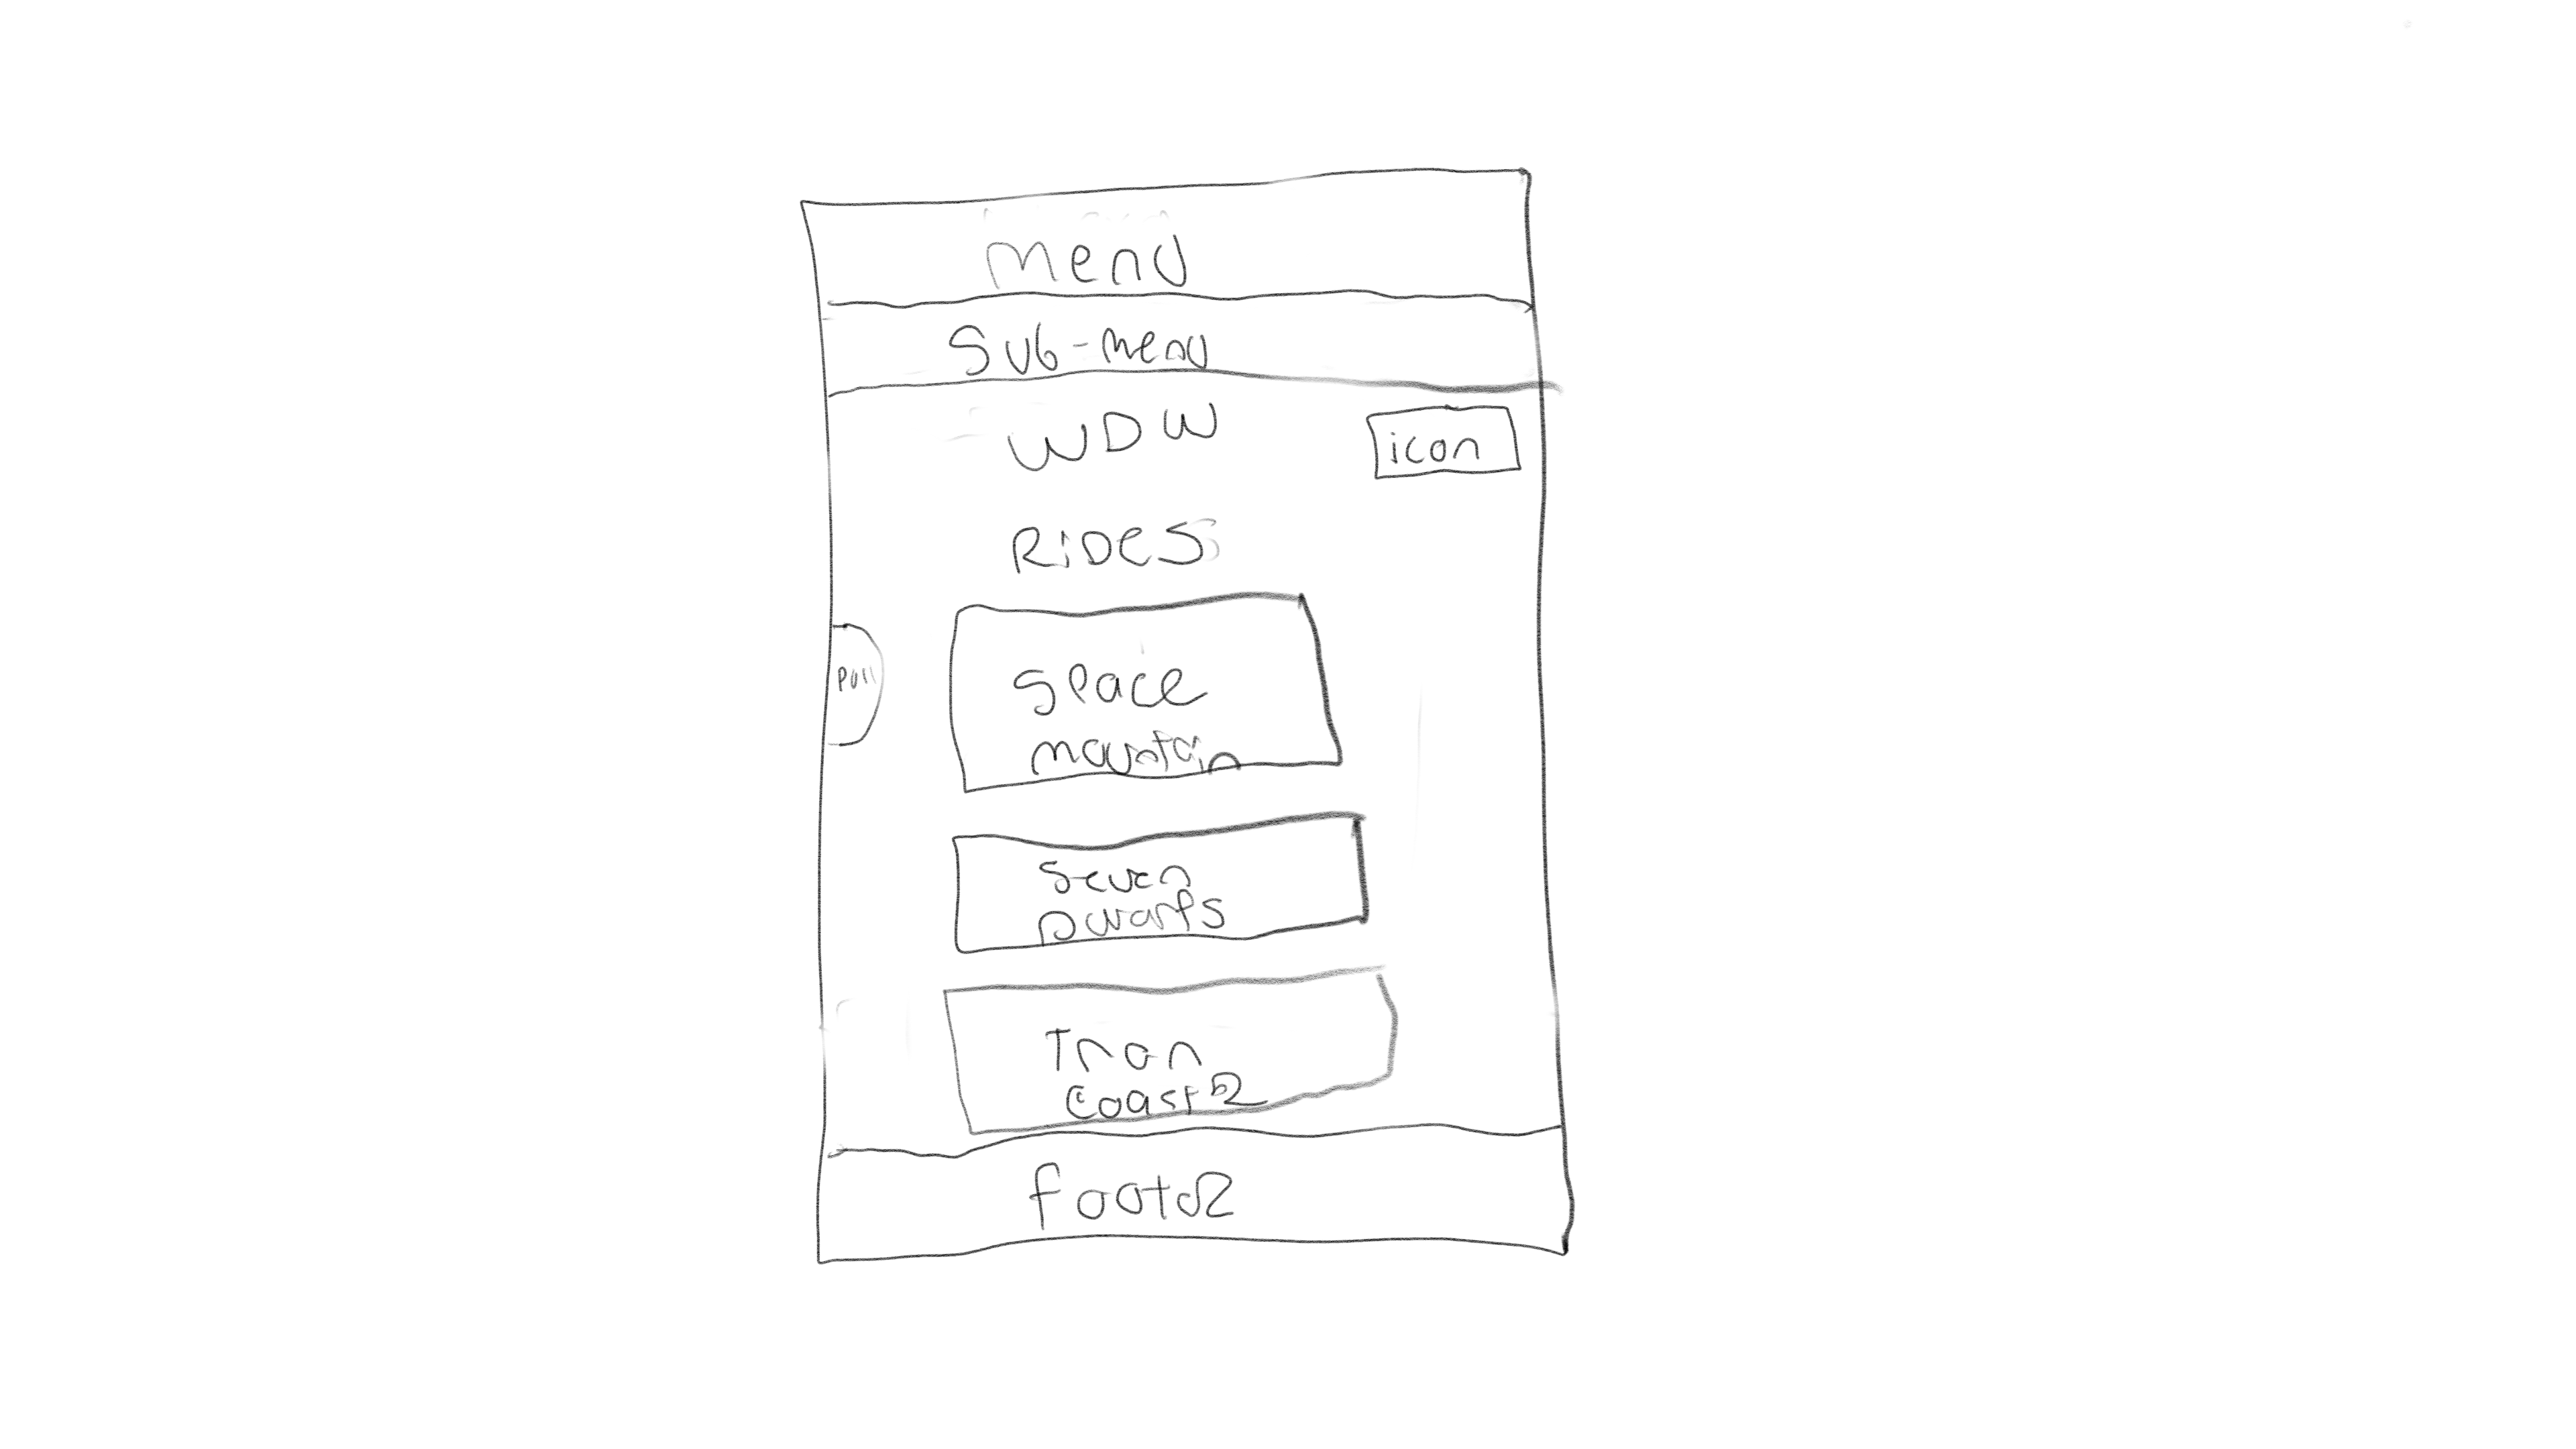 menu
Sub-menu
WDW
icon
RiDeS
Pull
Space
mountain
Seven
Dwarfs
Tron
Coaster
footer